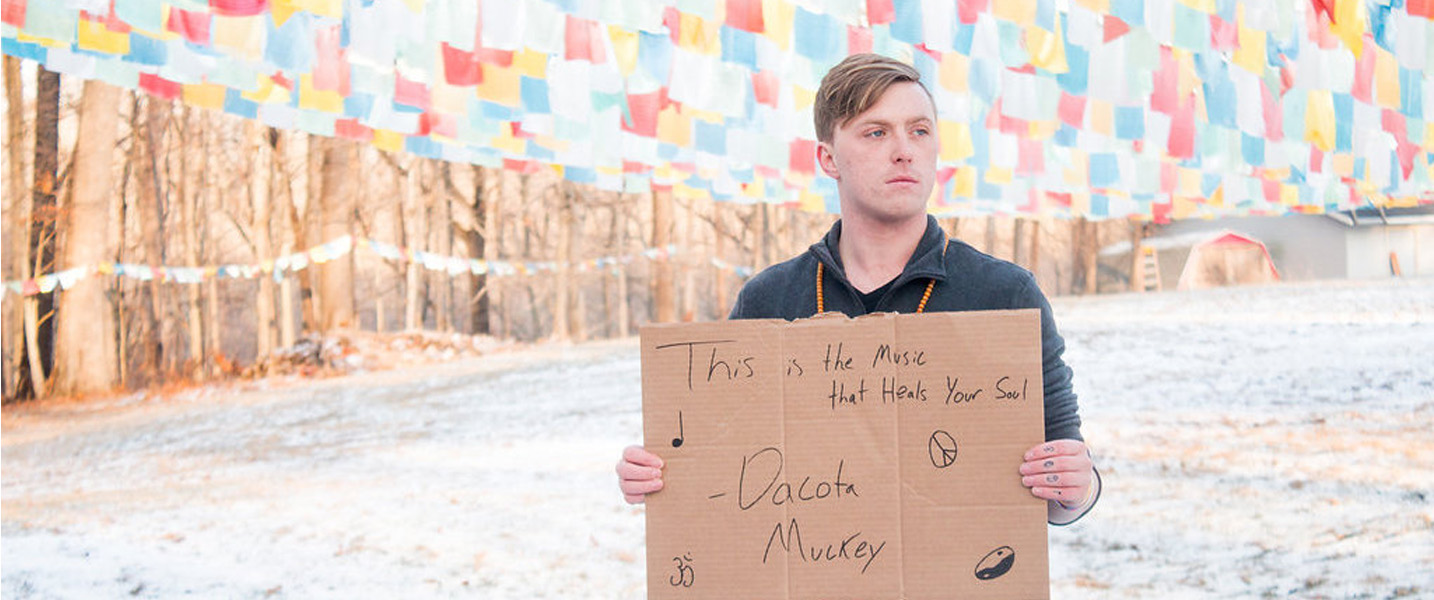 This is the Music
that Heals Your Soul
- Dacota
Muckey
ॐ